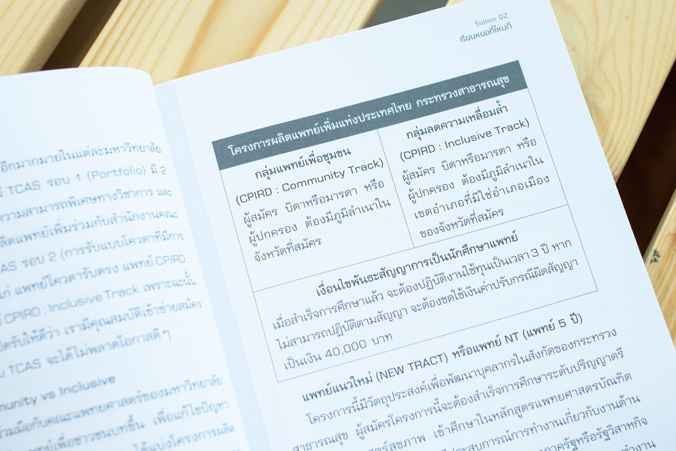 อีกมากมายในแต่ละมหาวิทยาลัย
TCAS รอบ 1 (Portfolio) มี 2
ความสามารถพิเศษทางวิชาการ และ
ผลิตแพทย์เพิ่มร่วมกับสำนักงานคณะ
CAS รอบ 2 (การรับแบบโควตาที่มีการ
แก่ แพทย์โควตารับตรง แพทย์ CPIRD
CPIRD : Inclusive Track เพราะฉะนั้น
ปิดรับให้ดีว่า เรามีคุณสมบัติเข้าข่ายสมัคร
TCAS จะได้ไม่พลาดโอกาสดี ๆ
munity vs Inclusive
ร่วมมือกับคณะแพทยศาสตร์ของมหาวิทยาลัย
แพทย์เพื่อชาวชนบทขึ้น เพื่อแก้ไขปัญหา
ได้แบ่งโครงการผลิต
Station 02
เรียนหมอที่ไหนดี
โครงการผลิตแพทย์เพิ่มแห่งประเทศไทย กระทรวงสาธารณสุข
กลุ่มแพทย์เพื่อชุมชน
(CPIRD : Community Track)
ผู้สมัคร บิดาหรือมารดา หรือ
ผู้ปกครอง ต้องมีภูมิลำเนาใน
จังหวัดที่สมัคร
กลุ่มลดความเหลื่อมล้ำ
(CPIRD : Inclusive Track)
ผู้สมัคร บิดาหรือมารดา หรือ
ผู้ปกครอง ต้องมีภูมิลำเนาใน
เขตอำเภอที่มิใช่อำเภอเมือง
ของจังหวัดที่สมัคร
เงื่อนไขพันธะสัญญาการเป็นนักศึกษาแพทย์
เมื่อสำเร็จการศึกษาแล้ว จะต้องปฏิบัติงานใช้ทุนเป็นเวลา 3 ปี หาก
ไม่สามารถปฏิบัติตามสัญญา จะต้องชดใช้เงินค่าปรับกรณีผิดสัญญา
เป็นเงิน 40,000 บาท
แพทย์แนวใหม่ (NEW TRACT) หรือแพทย์ NT (แพทย์ 5 ปี)
โครงการนี้มีวัตถุประสงค์เพื่อพัฒนาบุคลากรในสังกัดของกระทรวง
สาธารณสุข ผู้สมัครโครงการนี้จะต้องสำเร็จการศึกษาระดับปริญญาตรี
ศาสตร์สุขภาพ เข้าศึกษาในหลักสูตรแพทยศาสตรบัณฑิต
ประสบการณ์การทำงานเกี่ยวกับงานด้าน
ภาครัฐหรือรัฐวิสาหกิจ